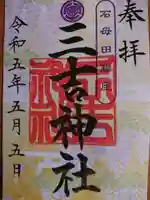 奉拝
石母田
三吉神社
令和五年五月五日